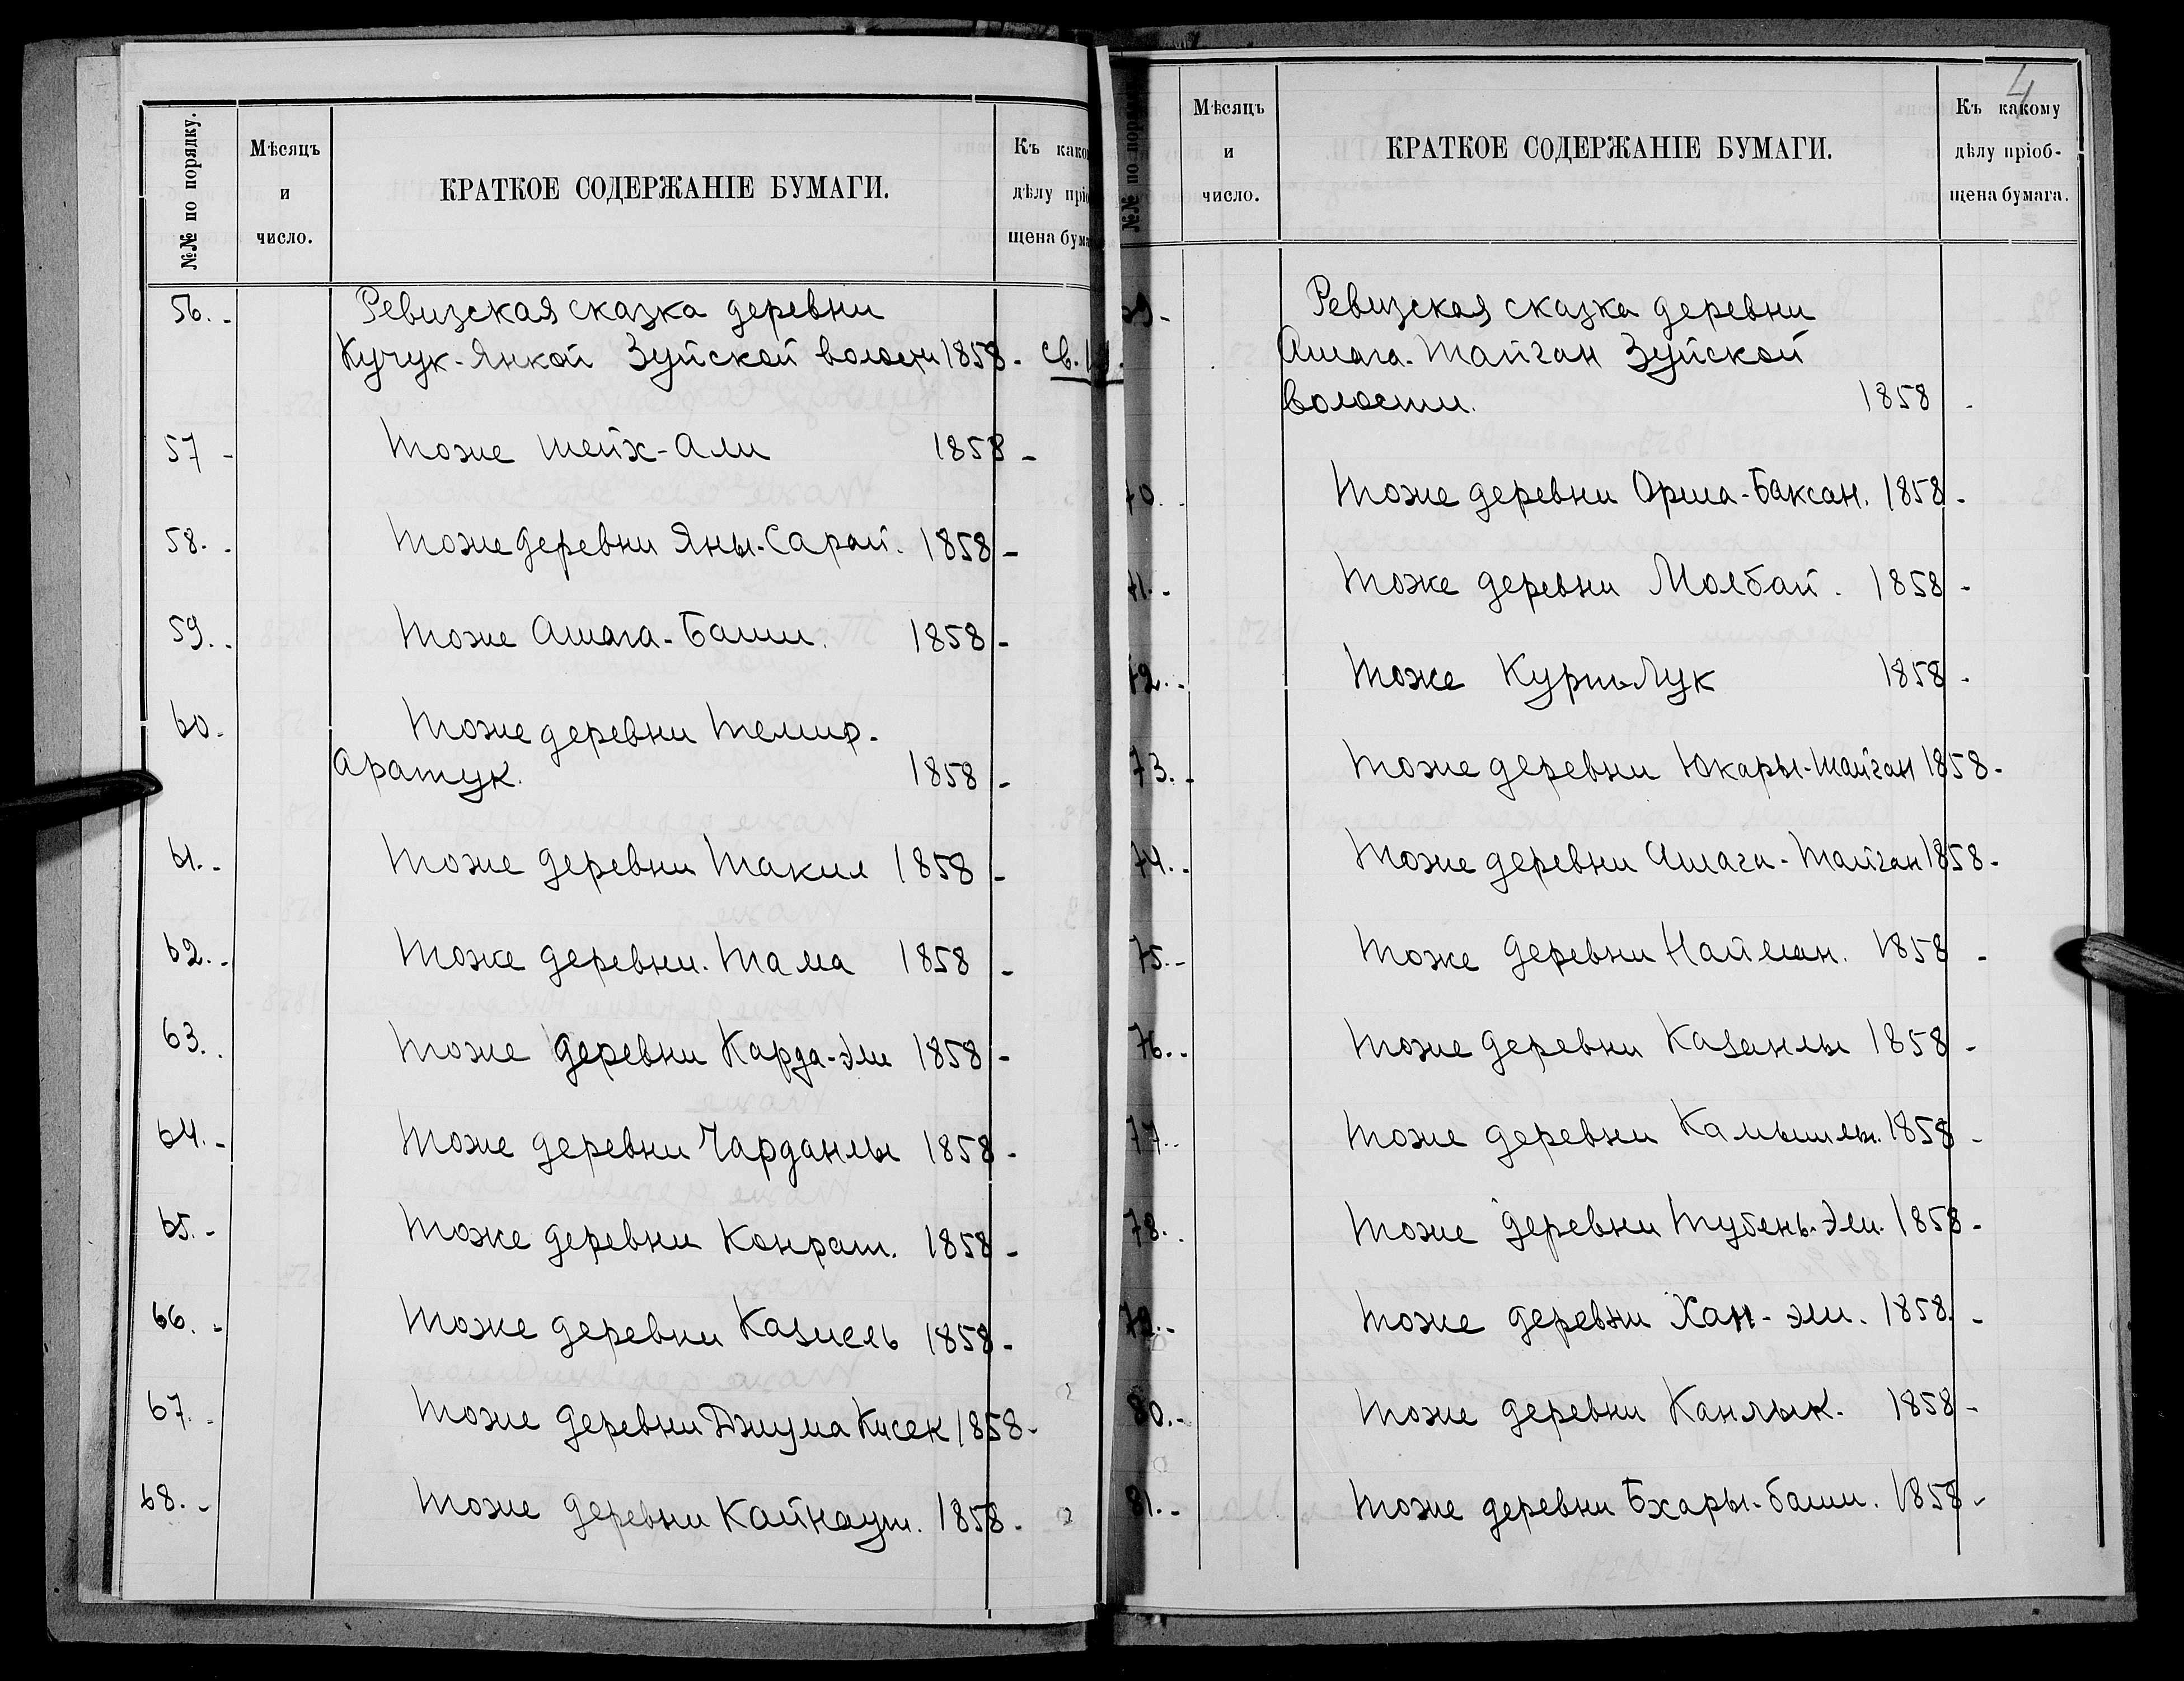 №№ по порядку.
Мѣсяцъ
и
число.
КРАТКОЕ СОДЕРЖАНІЕ БУМАГИ.
Къ како
дѣлу пріо
щена бума
56. - Ревизская сказка деревни
Кучук-Янкой Зуйской волости 1858 - св.
57 - Тоже Шейх-Али 1858 -
58. - Тоже деревни Яны-Сарай. 1858 -
59. - Тоже Ашага-Баши. 1858 -
60. Тоже деревни Темир-
Аратук. 1858 -
61. - Тоже деревни Такил 1858 -
62. - Тоже деревни. Тама 1858 -
63. Тоже деревни Карда-Эли 1858 -
64. - Тоже деревни Чарданлы 1858 -
65. - Тоже деревни Конрат. 1858 -
66. - Тоже деревни Казиель 1858 -
67. - Тоже деревни Джума Кисек 1858 -
68. - Тоже деревни Кайнаут. 1858 -
4
№№ по поряд
Мѣсяцъ
и
число.
КРАТКОЕ СОДЕРЖАНІЕ БУМАГИ.
Къ какому
дѣлу пріоб-
щена бумага.
Ревизская сказка деревни
Ашага-Тайган Зуйской
волости. 1858 -
70. - Тоже деревни Орта-Баксан. 1858 -
71. - Тоже деревни Молбай. 1858 -
72. - Тоже Куртлук 1858 -
73. - Тоже деревни Юкары-Тайган 1858 -
74. - Тоже деревни Ашага-Тайган 1858 -
75. - Тоже деревни Найман. 1858 -
76. - Тоже деревни Казанлы 1858 -
77. - Тоже деревни Камышлы. 1858 -
78. - Тоже деревни Тубень-Эли. 1858 -
79. - Тоже деревни Хан-эли. 1858. -
80. - Тоже деревни Канлык. 1858 -
81. - Тоже деревни Бхары-баши. 1858 -